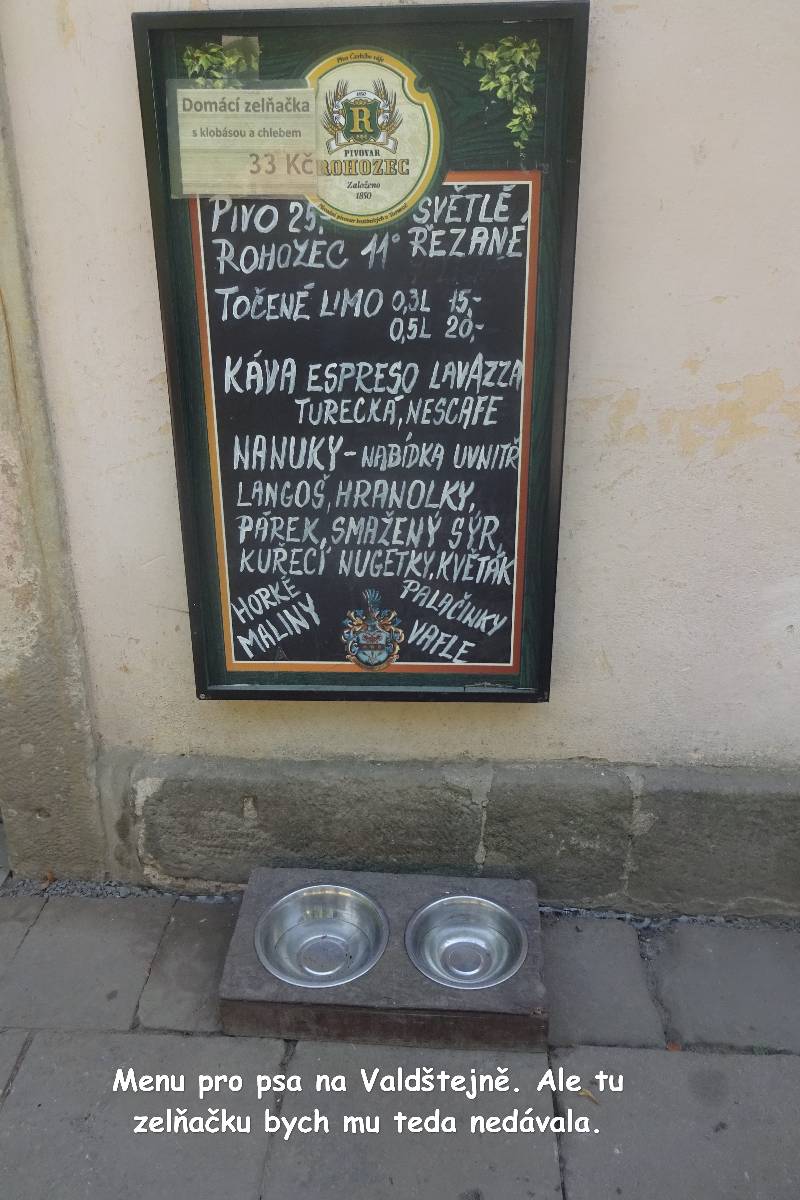 Pivo Českého ráje
Domácí zelňačka
s klobásou a chlebem
33 Kč
1850
R
PIVOVAR
ROHOZEC
Založeno
1850
PIVO 25,- SVĚTLÉ,
ROHOZEC 11° ŘEZANÉ
TOČENÉ LIMO 0,3L 15,-
0,5L 20,-
KÁVA ESPRESO LAVAZZA
TURECKÁ, NESCAFE
NANUKY - NABÍDKA UVNITŘ
LANGOŠ, HRANOLKY,
PÁREK, SMAŽENÝ SÝR,
KUŘECÍ NUGETKY, KVĚTÁK
HORKÉ
MALINY
PALAČINKY
VAFLE
Menu pro psa na Valdštejně. Ale tu
zelňačku bych mu teda nedávala.